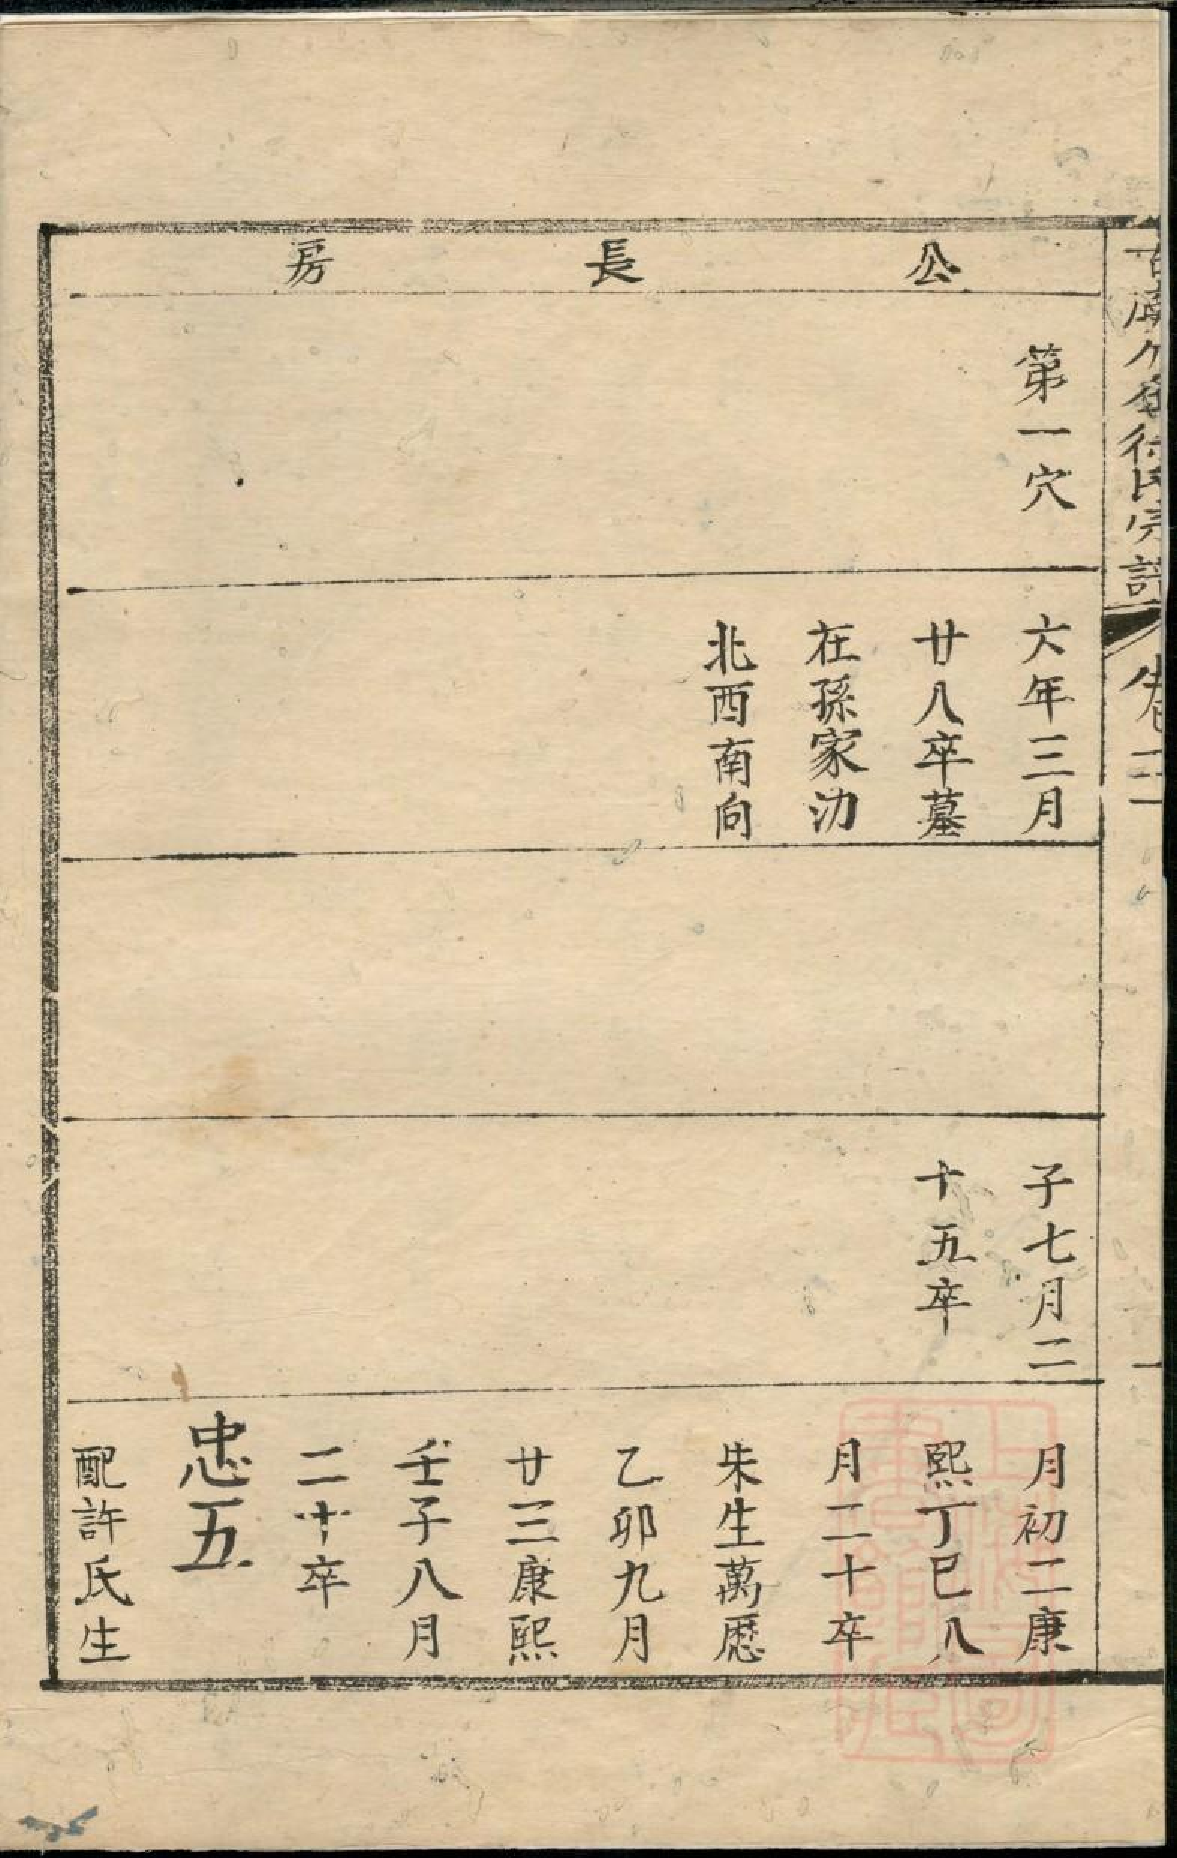 公長房
第一穴
六年三月
廿八卒墓
在孫家沕
北酉南向
子七月二
十五卒
月初二康
熙丁巳八
月二十卒
朱生萬厯
乙卯九月
廿三康熙
壬子八月
二十卒
忠五
配許氏生